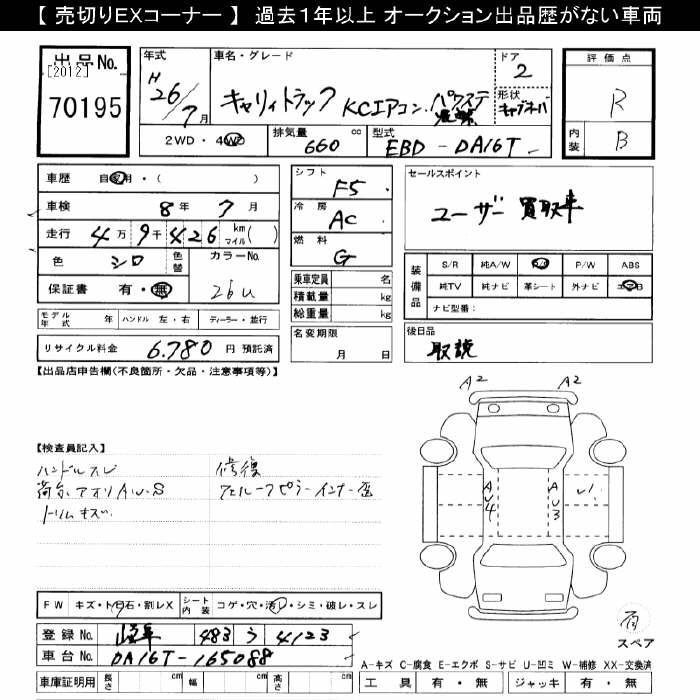 【 売切りEXコーナー 】 過去1年以上 オークション出品歴がない車両
出品No.
[2012]
70195
年式
H
26/7月
車名・グレード
キャリイトラック KCエアコン.パワステ
ドア
2
形状
キャブオーバ
2WD・4WD
排気量 660 cc
型式 EBD-DA16T
評価点
R
内装
B
車歴 自家用・( )
車検 8年 7月
走行 4万 9千 426 km マイル( )
色 シロ 色替
カラーNo.
26U
保証書 有・無
モデル年式 年 ハンドル 左・右 ディーラー・並行
リサイクル料金 6.780 円 預託済
シフト F5
冷房 AC
燃料 G
乗車定員 名
積載量 kg
総重量 kg
名変期限
月 日
セールスポイント
ユーザー買取車
装備品
S/R 純A/W P/S P/W ABS
純TV 純ナビ 革シート 外ナビ エアB
ナビ型番:
後日品
取説
【出品店申告欄(不良箇所・欠品・注意事項等)】
【検査員記入】
ハンドルスレ
荷台アオリAW-S
トリムキズ
修復
A2 A2
A
U
4
A
U
3
FW キズ・ト飛石・割レX
シート内装 コゲ・穴・汚レ・シミ・破レ・スレ
登録No. 岐阜 483 う 4123
車台No. DA16T-165088
車庫証明用 長さ cm 幅 cm 高さ cm
有
スペア
A-キズ C-腐食 E-エクボ S-サビ U-凹ミ W-補修 XX-交換済
工具 有・無 ジャッキ 有・無